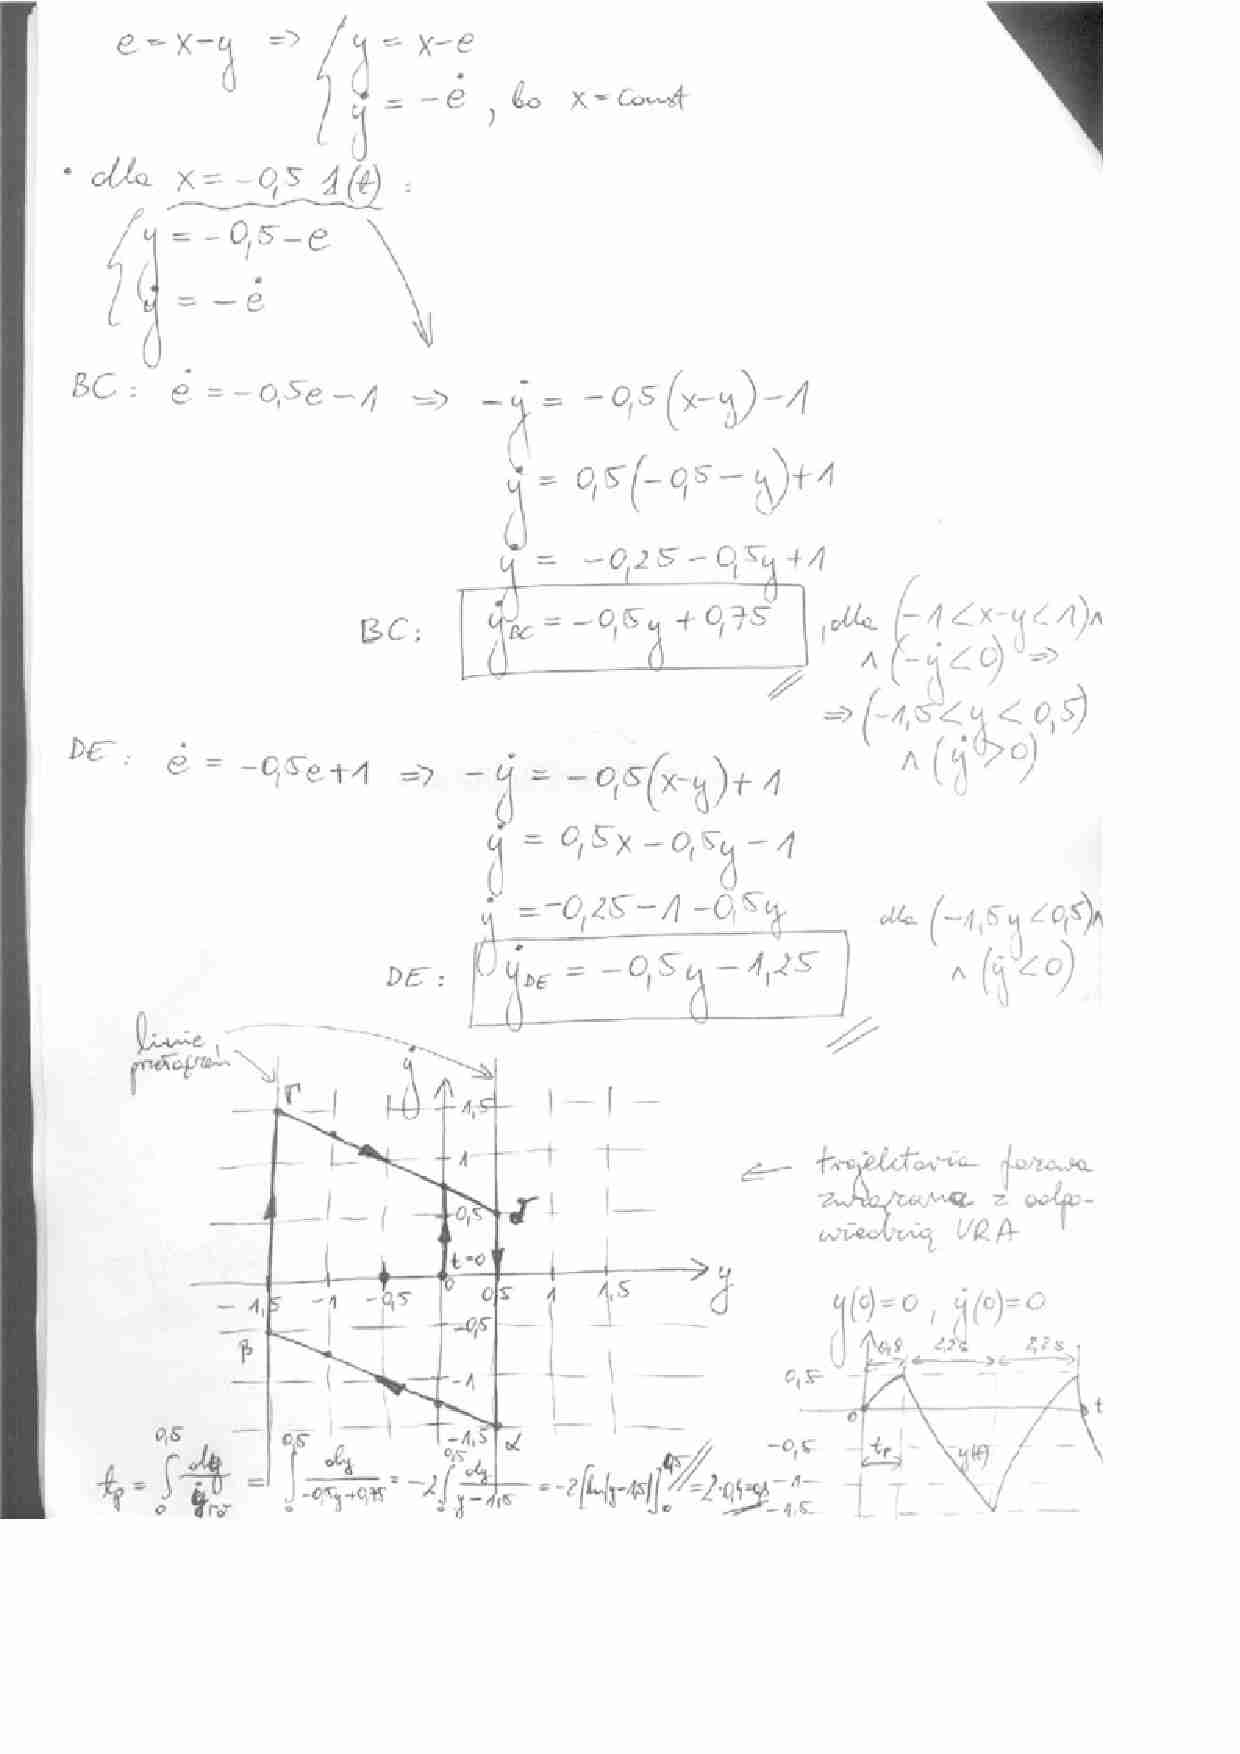 e = x-y => { y = x-e
ẏ = -ė , bo x = const
• dla x = -0,5 1(t) :
{ y = -0,5-e
ẏ = -ė
BC: ė = -0,5e-1 => -ẏ = -0,5(x-y)-1
ẏ = 0,5(-0,5-y)+1
ẏ = -0,25-0,5y+1
BC: ẏ_BC = -0,5y+0,75 , dla (-1<x-y<1)∧
∧(-ẏ<0) =>
=> (-1,5<y<0,5)
∧(ẏ>0)
DE: ė = -0,5e+1 => -ẏ = -0,5(x-y)+1
ẏ = 0,5x-0,5y-1
ẏ = -0,25-1-0,5y
dla (-1,5y<0,5)∧
DE: ẏ_DE = -0,5y-1,25
∧(ẏ<0)
linie
przełączeń
ẏ
Γ
1,5
1
0,5
δ
t=0
0
y
-1,5 -1 -0,5 0,5 1 1,5
-0,5
β
-1
-1,5
α
<- trajektoria fazowa
związana z odpo-
wiedzią URA
y(0)=0 , ẏ(0)=0
0,8 2,2s 2,2s
0,5
0
t
-0,5
t_p
y(t)
-1
-1,5
t_p = ∫₀^0,5 dy/ẏ_Γδ = ∫₀^0,5 dy/(-0,5y+0,75) = -2∫₀^0,5 dy/(y-1,5) = -2[ln|y-1,5|]₀^0,5 = 2·0,4=0,8